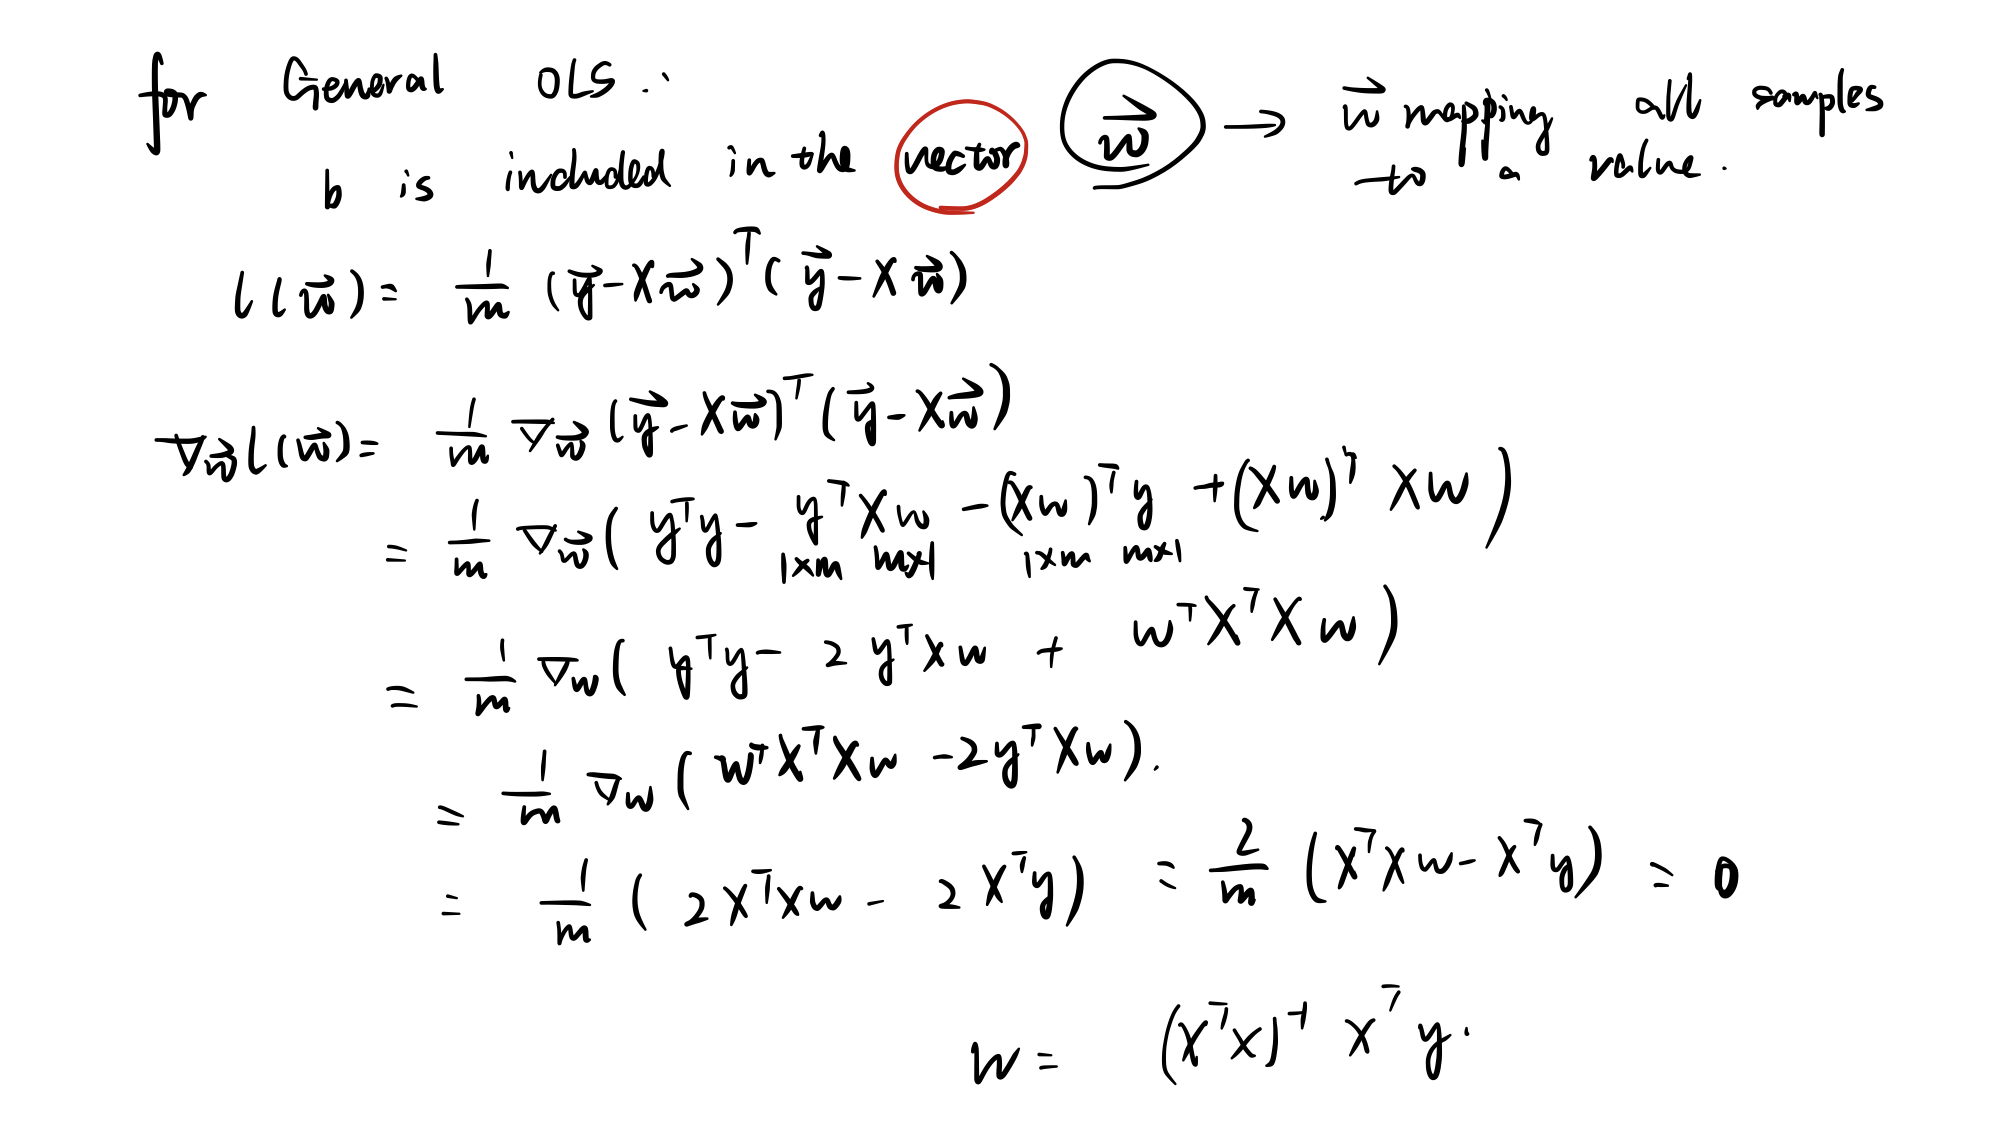 for General OLS :
b is included in the vector w⃗ → w⃗ mapping all samples
to a value.
l(w⃗) = 1/m (y⃗ - Xw⃗)ᵀ(y⃗ - Xw⃗)
∇w⃗ l(w⃗) = 1/m ∇w⃗ (y⃗ - Xw⃗)ᵀ(y⃗ - Xw⃗)
= 1/m ∇w⃗ ( yᵀy - yᵀXw - (Xw)ᵀy + (Xw)ᵀ Xw )
1×m m×1 1×m m×1
= 1/m ∇w ( yᵀy - 2 yᵀXw + wᵀXᵀXw )
= 1/m ∇w ( wᵀXᵀXw - 2yᵀXw ).
= 1/m ( 2XᵀXw - 2Xᵀy ) = 2/m ( XᵀXw - Xᵀy ) = 0
w = (XᵀX)⁻¹ Xᵀy.